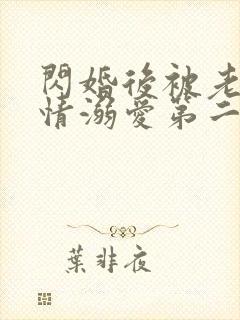 閃婚後被老
情溺愛第二
葉非夜